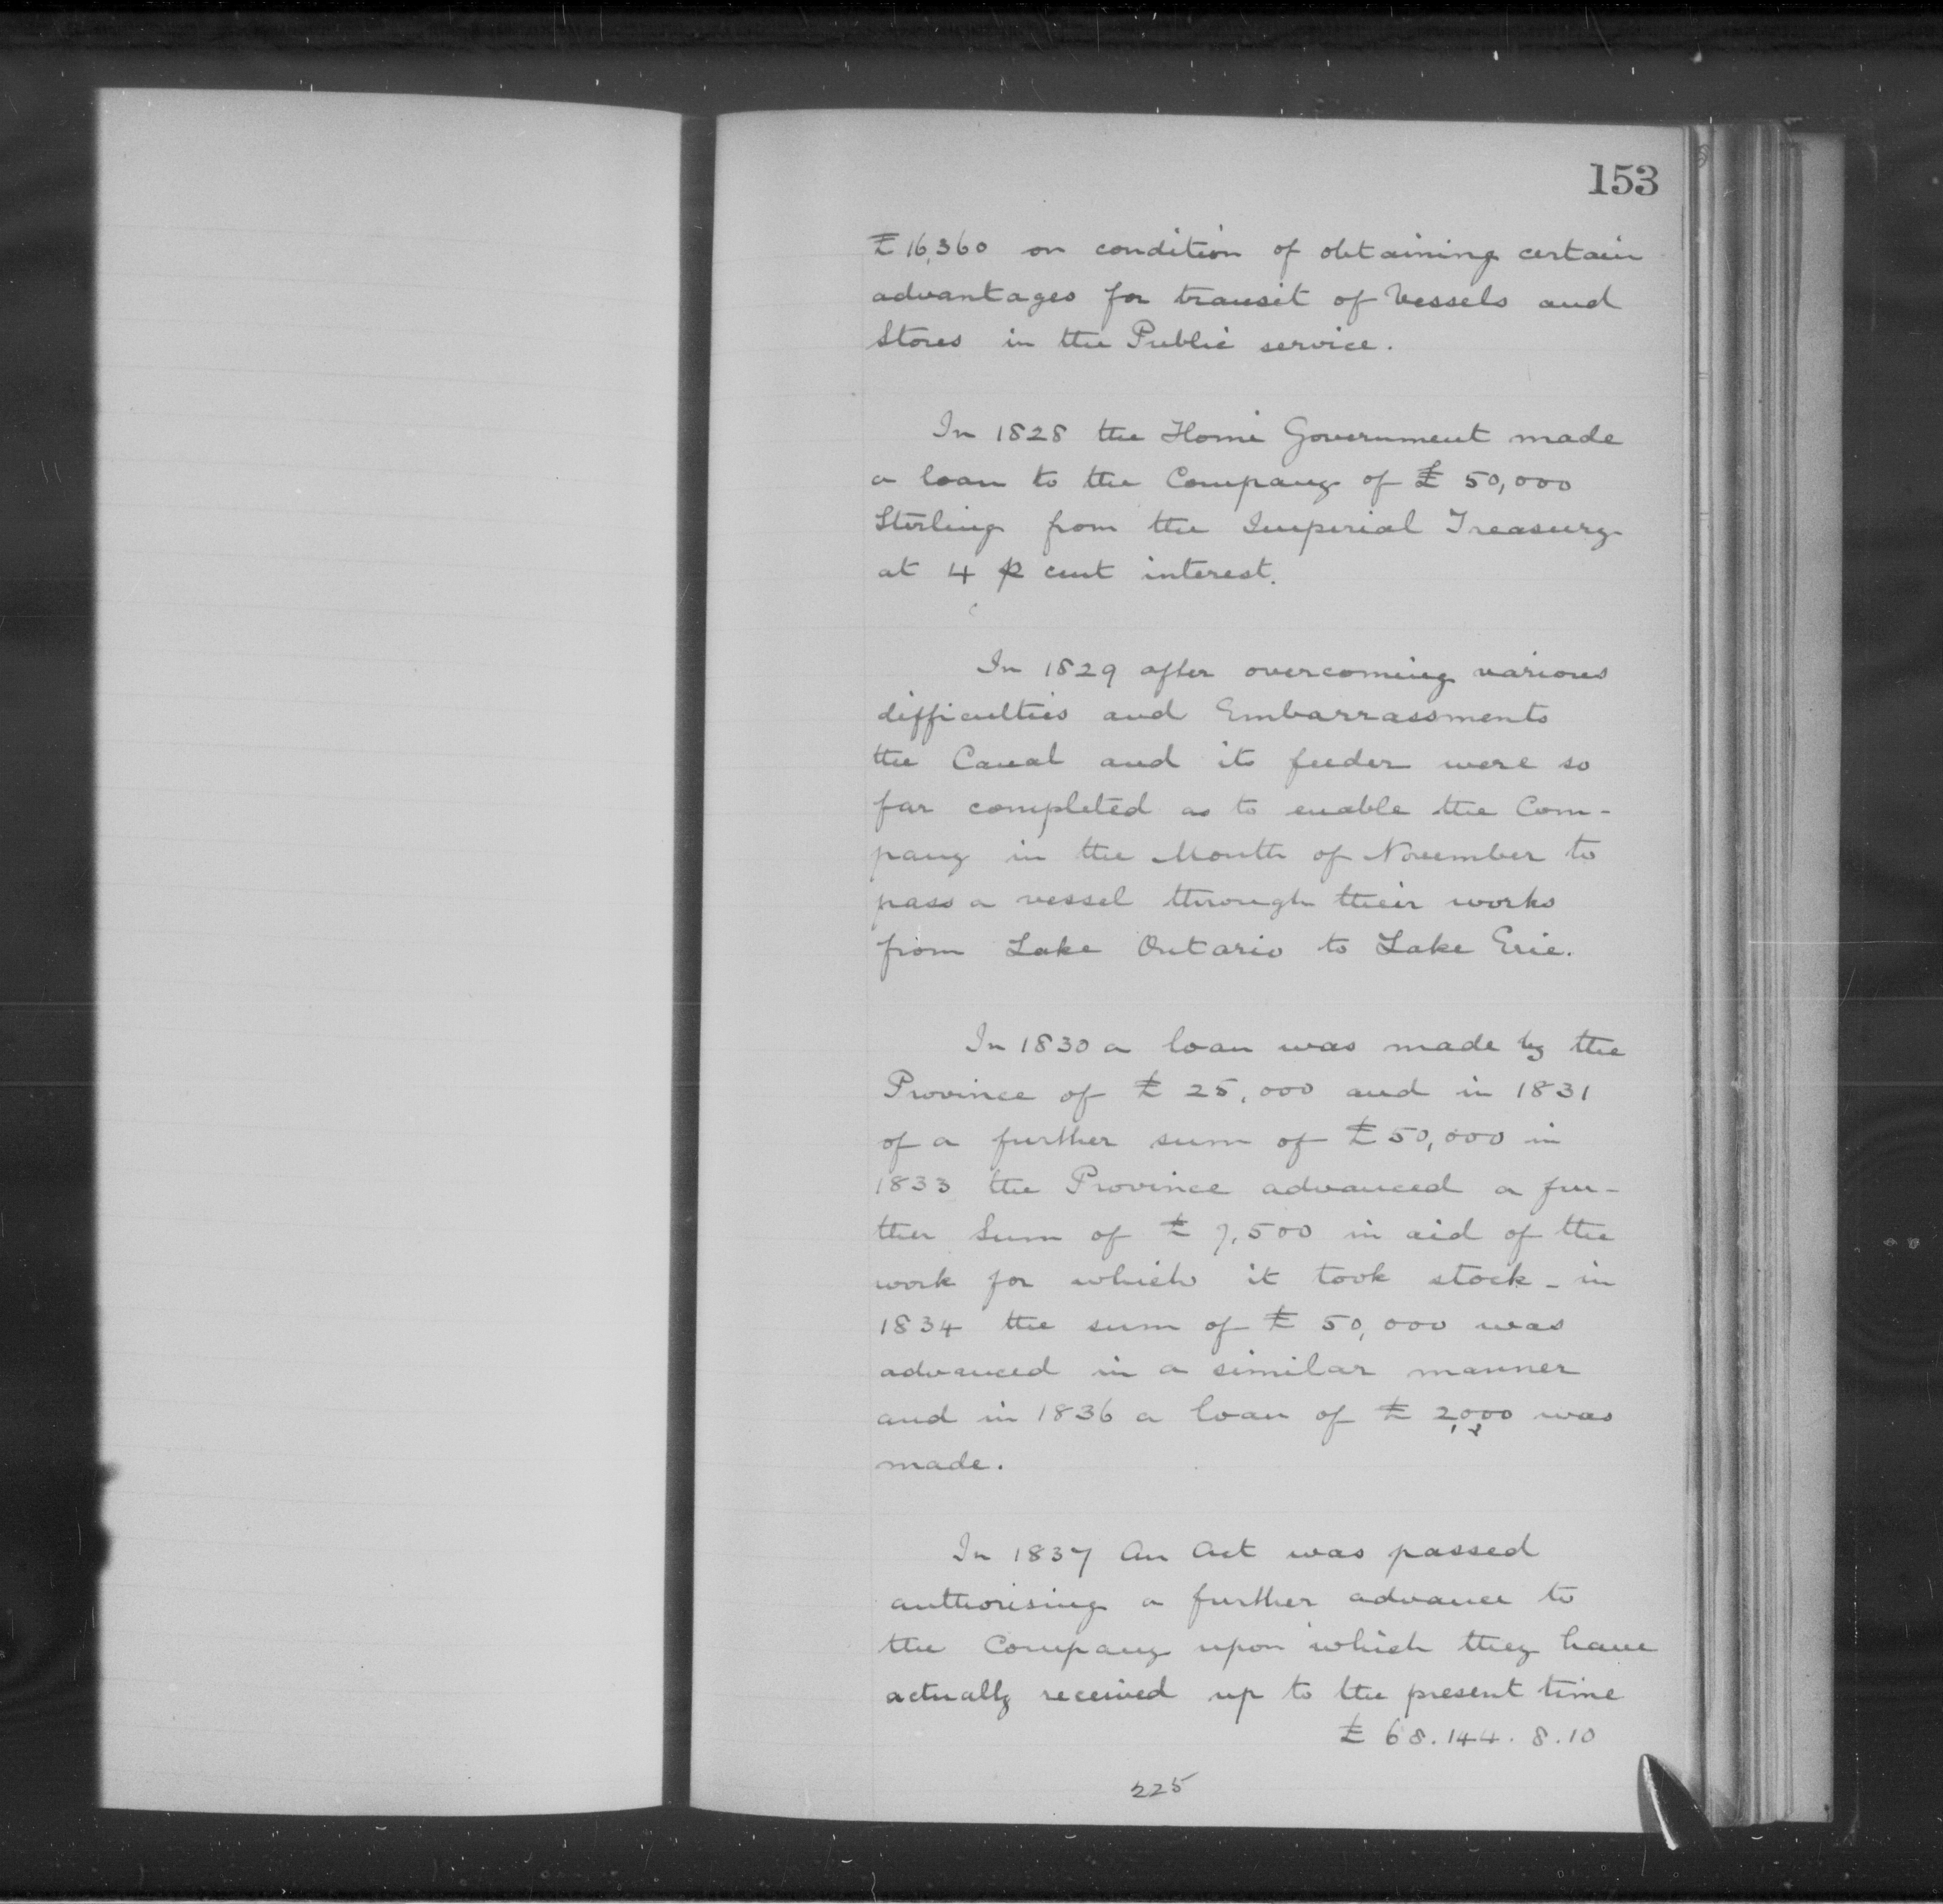 153
£16,360 on condition of obtaining certain
advantages for transit of Vessels and
Stores in the Public service.
In 1828 the Home Government made
a loan to the Company of £ 50,000
Sterling from the Imperial Treasury
at 4 ⅌ cent interest.
In 1829 after overcoming various
difficulties and Embarrassments
the Canal and its feeder were so
far completed as to enable the Com-
pany in the Month of November to
pass a vessel through their works
from Lake Ontario to Lake Erie.
In 1830 a loan was made by the
Province of £ 25,000 and in 1831
of a further sum of £50,000 in
1833 the Province advanced a fur-
ther Sum of £ 7,500 in aid of the
work for which it took stock - in
1834 the sum of £ 50,000 was
advanced in a similar manner
and in 1836 a loan of £ 2,000 was
made.
In 1837 An Act was passed
authorising a further advance to
the Company upon which they have
actually received up to the present time
£ 68.144. 8.10
225